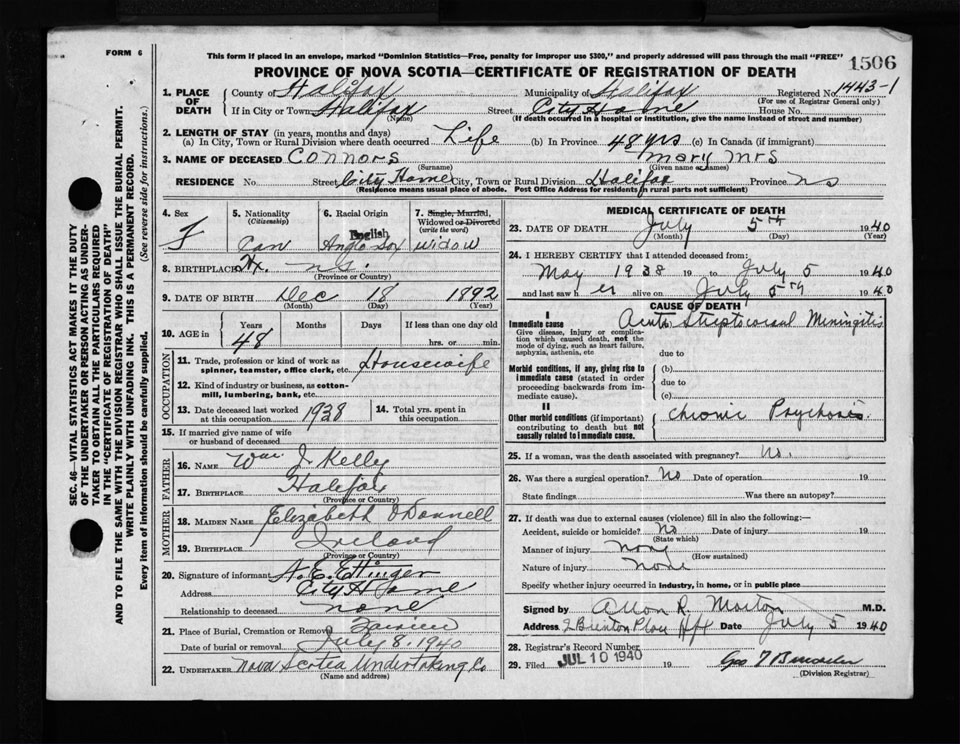 FORM 6
This form if placed in an envelope, marked "Dominion Statistics—Free, penalty for improper use $300," and properly addressed will pass through the mail "FREE"
1506
PROVINCE OF NOVA SCOTIA—CERTIFICATE OF REGISTRATION OF DEATH
SEC. 46—VITAL STATISTICS ACT MAKES IT THE DUTY
OF THE UNDERTAKER OR PERSON ACTING AS UNDER-
TAKER TO OBTAIN ALL THE PARTICULARS REQUIRED
IN THE "CERTIFICATE OF REGISTRATION OF DEATH"
AND TO FILE THE SAME WITH THE DIVISION REGISTRAR WHO SHALL ISSUE THE BURIAL PERMIT.
WRITE PLAINLY WITH UNFADING INK. THIS IS A PERMANENT RECORD.
Every item of information should be carefully supplied. (See reverse side for instructions.)
1. PLACE OF DEATH County of Halifax Municipality of Halifax Registered No. 1443-1
(For use of Registrar General only)
If in City or Town Halifax Street City Home House No.
(Name) (If death occurred in a hospital or institution, give the name instead of street and number)
2. LENGTH OF STAY (in years, months and days)
(a) In City, Town or Rural Division where death occurred Life (b) In Province 48 yrs (c) In Canada (if immigrant)
3. NAME OF DECEASED Connors Mary Mrs
(Surname) (Given name or names)
RESIDENCE No. Street City Home City, Town or Rural Division Halifax Province NS
(Residence means usual place of abode. Post Office Address for residents in rural parts not sufficient)
4. Sex F
5. Nationality (Citizenship) Can
6. Racial Origin English Anglo Sox
7. Single, Married, Widowed or Divorced (write the word) widow
8. BIRTHPLACE Hx. ns.
(Province or Country)
9. DATE OF BIRTH Dec 18 1892
(Month) (Day) (Year)
10. AGE in Years Months Days If less than one day
48 hrs. or min.
OCCUPATION
11. Trade, profession or kind of work as spinner, teamster, office clerk, etc. Housewife
12. Kind of industry or business, as cotton-mill, lumbering, bank, etc.
13. Date deceased last worked at this occupation 1938
14. Total yrs. spent in this occupation
15. If married give name of wife or husband of deceased
FATHER
16. NAME Wm J. Kelly
17. BIRTHPLACE Halifax
(Province or Country)
MOTHER
18. MAIDEN NAME Elizabeth O'Donnell
19. BIRTHPLACE Ireland
(Province or Country)
20. Signature of informant A. E. Ettinger
Address City Home
Relationship to deceased none
21. Place of Burial, Cremation or Removal
Date of burial or removal July 8. 1940
22. UNDERTAKER Nova Scotia Undertaking Co
(Name and address)
MEDICAL CERTIFICATE OF DEATH
23. DATE OF DEATH July 5th 1940
(Month) (Day) (Year)
24. I HEREBY CERTIFY that I attended deceased from:
May 1938 19 to July 5 1940
and last saw her alive on July 5th 1940
CAUSE OF DEATH
I
Immediate cause Acute Streptococcal Meningitis
Give disease, injury or complication which caused death, not the mode of dying, such as heart failure, asphyxia, asthenia, etc
due to
Morbid conditions, if any, giving rise to immediate cause (stated in order proceeding backwards from immediate cause).
(b)
due to
(c)
II
Other morbid conditions (if important) contributing to death but not causally related to immediate cause.
Chronic Psychosis.
25. If a woman, was the death associated with pregnancy? No.
26. Was there a surgical operation? No Date of operation 19
State findings Was there an autopsy?
27. If death was due to external causes (violence) fill in also the following:—
Accident, suicide or homicide? No Date of injury 19
(State which)
Manner of injury none
(How sustained)
Nature of injury none
Specify whether injury occurred in industry, in home, or in public place
Signed by Allon R. Morton M.D.
Address 2 Brenton Place Hfx Date July 5 1940
28. Registrar's Record Number
29. Filed JUL 10 1940 19
(Division Registrar)